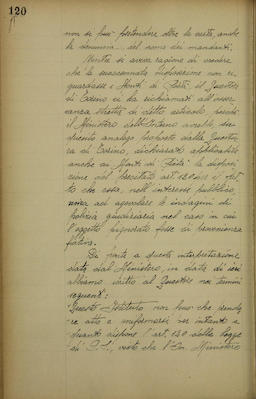 120
non si può pretendere oltre la carta, anche
la denuncia del nome dei mandanti.
Mentre si aveva ragione di credere
che la summenzionata disposizione non ri-
guardasse i Monti di Pietà, il Questore
di Torino ci ha richiamati all'osser-
vanza di detto articolo, perchè
il Ministero interpellato
analogo proposto dalla Questu-
ra di Torino, dichiarava applicabile
anche ai Monti di Pietà la disposi-
zione del precitato art. 130
to che essa, nell'interesse pubblico,
mira ad agevolare le indagini di
polizia giudiziaria nel caso in cui
l'oggetto pignorato fosse di provenienza
furtiva.
Di fronte a questa interpretazione
data dal Ministero, in data di ieri
abbiamo scritto al Questore nei termini
seguenti:
"Questo Istituto non può che rende-
re atto e uniformarsi per intanto a
quanto dispone l'art. 130 della Legge
di P.S., visto che l'On. Ministero